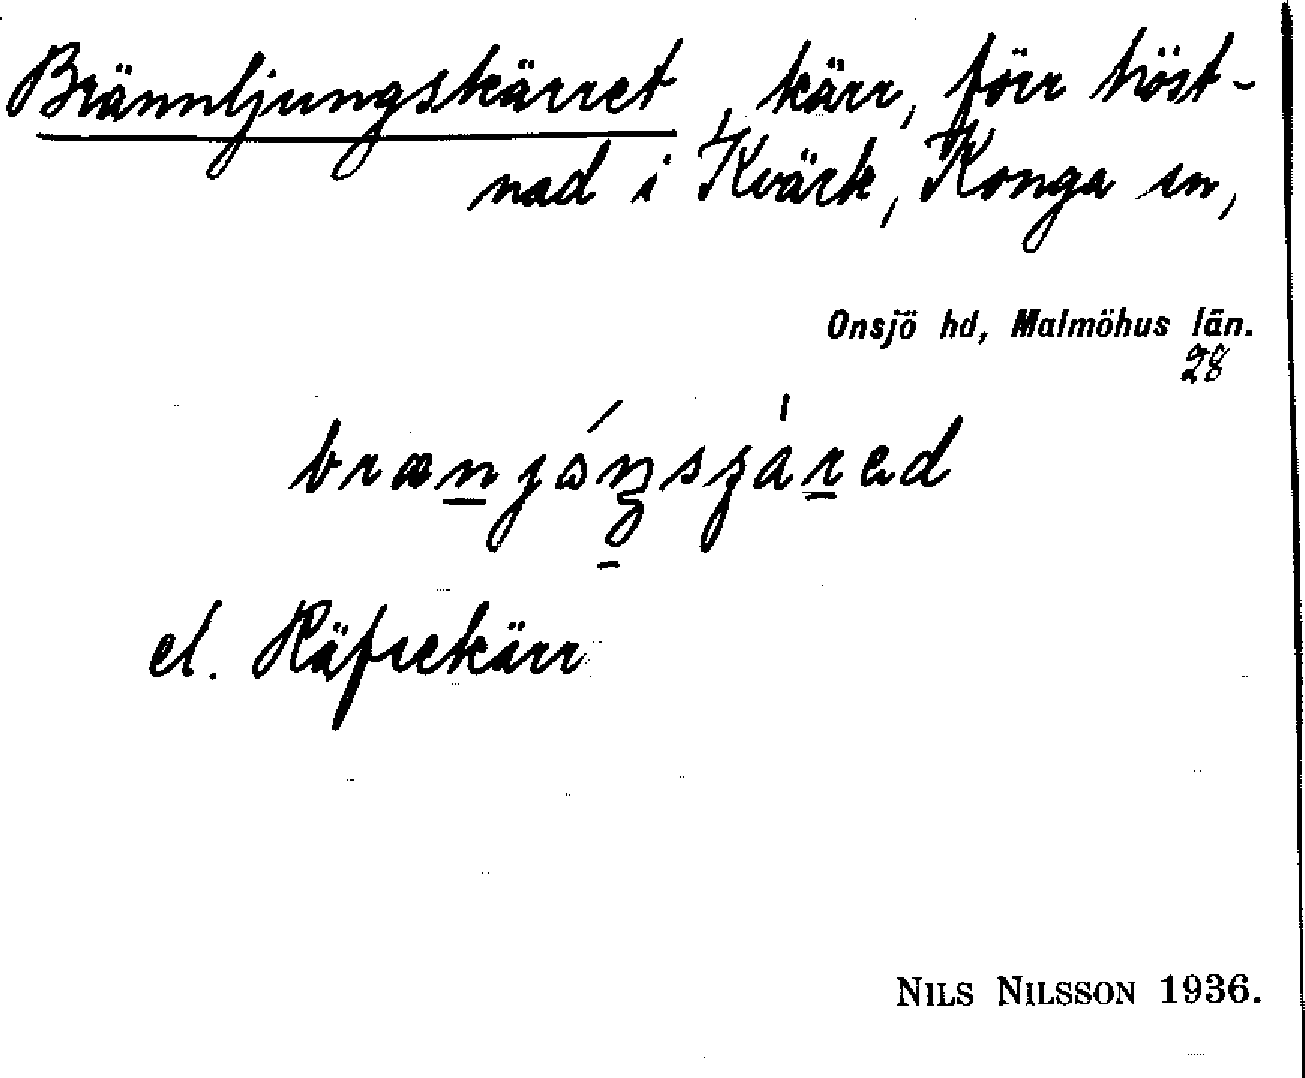 Brännljungskärret, kärr, förr höst-
nad i Kvärk, Konga sn,
Onsjö hd, Malmöhus län.
28
el. Käfrekärr
NILS NILSSON 1936.